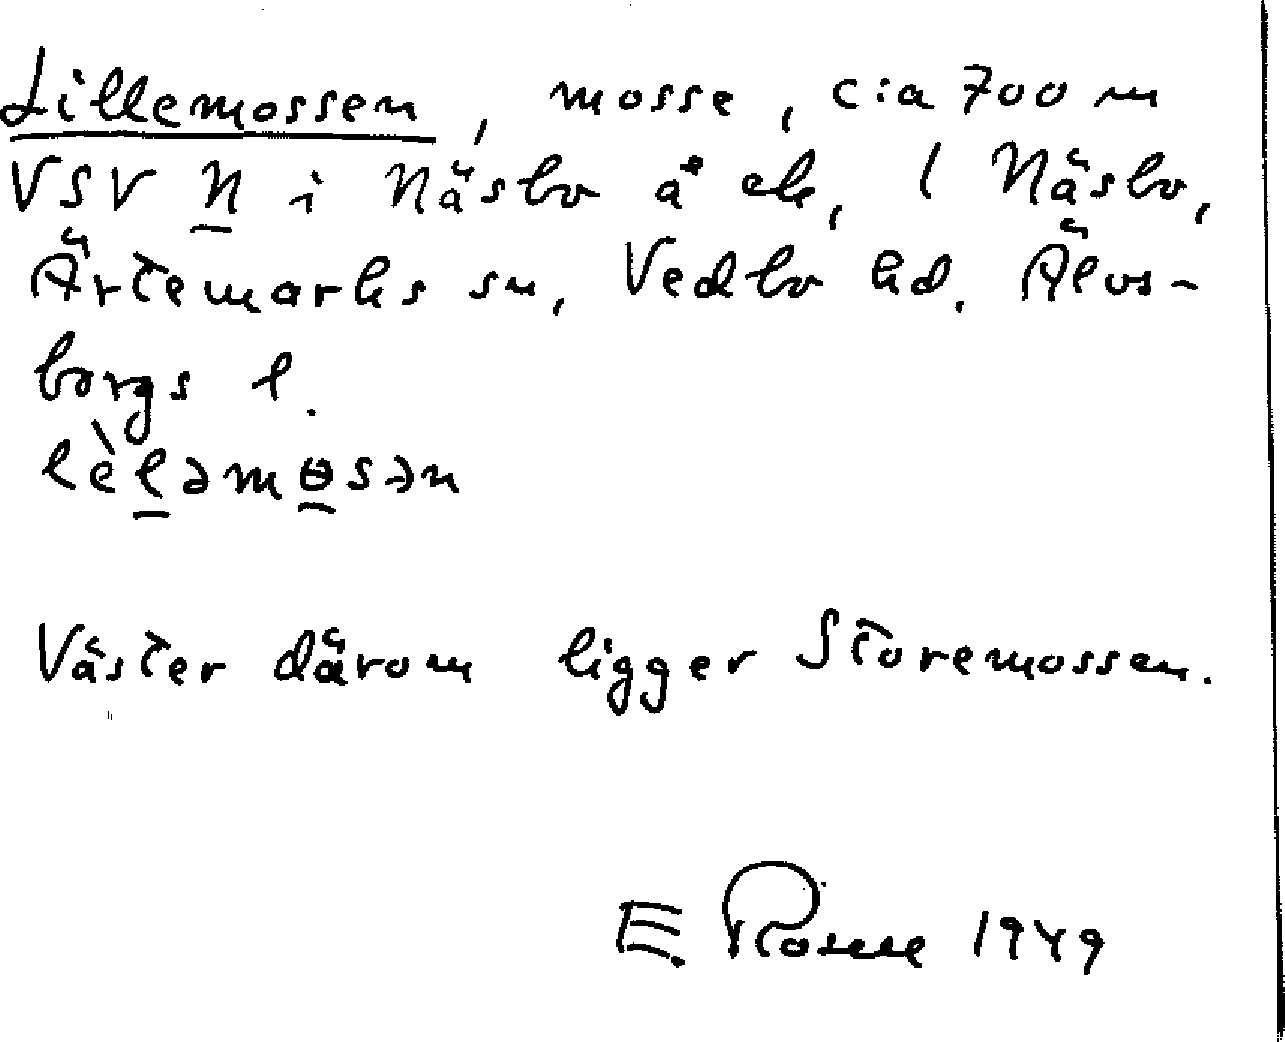 Lillemossen, mosse, c:a 700 m
VSV N i Näsbo å ek, 1 Näsbo,
Ärtemarks sn, Vedbo hd. Älvs-
borgs l.
lèləmɵsən
Väster därom ligger Storemossen.
E. 1949